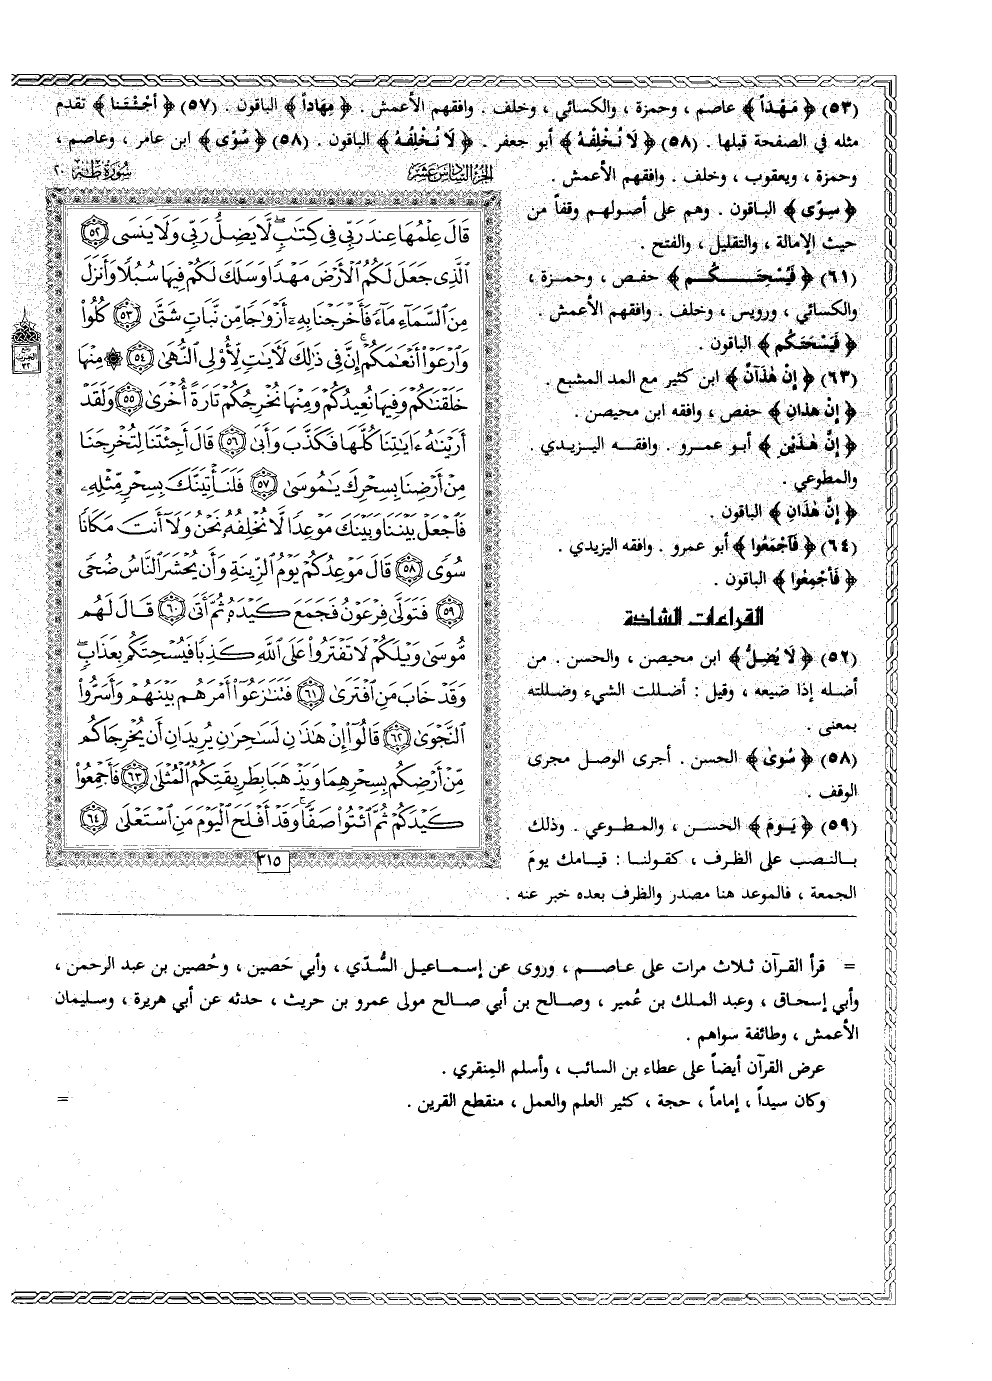 (٥٣) ﴿ مَهْداً ﴾ عاصم ، وحمزة ، والكسائي ، وخلف . وافقهم الأعمش . ﴿ مِهَاداً ﴾ الباقون . (٥٧) ﴿ أجِئْتَنا ﴾ تقدم
مثله في الصفحة قبلها . (٥٨) ﴿ لَا نُخْلِفْهُ ﴾ أبو جعفر . ﴿ لَا نُخْلِفُهُ ﴾ الباقون . (٥٨) ﴿ سُوًى ﴾ ابن عامر ، وعاصم ،
وحمزة ، ويعقوب ، وخلف . وافقهم الأعمش .
﴿ سِوًى ﴾ الباقون . وهم على أصولهم وقفاً من
حيث الإمالة ، والتقليل ، والفتح .
(٦١) ﴿ فَيُسْحِتَكُم ﴾ حفص ، وحمزة ،
والكسائي ، ورويس ، وخلف . وافقهم الأعمش .
﴿ فَيَسْحَتَكُم ﴾ الباقون .
(٦٣) ﴿ إِنْ هٰذَآنِّ ﴾ ابن كثير مع المد المشبع .
﴿ إِنْ هٰذانِ ﴾ حفص ، وافقه ابن محيصن .
﴿ إِنَّ هٰذَيْنِ ﴾ أبو عمرو . وافقه اليزيدي .
والمطوعي .
﴿ إِنَّ هٰذَانِ ﴾ الباقون .
(٦٤) ﴿ فَاجْمَعُوا ﴾ أبو عمرو . وافقه اليزيدي .
﴿ فَأَجْمِعُوا ﴾ الباقون .
القراءات الشاذة
(٥٢) ﴿ لَا يُضِلُّ ﴾ ابن محيصن ، والحسن . من
أضله إذا ضيعه ، وقيل : أضللت الشيء وضللته
بمعنى .
(٥٨) ﴿ سُوىٰ ﴾ الحسن . أجرى الوصل مجرى
الوقف .
(٥٩) ﴿ يَومَ ﴾ الحسن ، والمطوعي . وذلك
بالنصب على الظرف ، كقولنا : قيامك يومَ
الجمعة ، فالموعد هنا مصدر والظرف بعده خبر عنه .
الجزء السادس عشر
سورة طه ٢٠
قَالَ عِلْمُهَا عِندَ رَبِّى فِى كِتَٰبٍ ۖ لَّا يَضِلُّ رَبِّى وَلَا يَنسَى ﴿٥٢﴾
ٱلَّذِى جَعَلَ لَكُمُ ٱلْأَرْضَ مَهْدًا وَسَلَكَ لَكُمْ فِيهَا سُبُلًا وَأَنزَلَ
مِنَ ٱلسَّمَآءِ مَآءً فَأَخْرَجْنَا بِهِۦٓ أَزْوَٰجًا مِّن نَّبَاتٍ شَتَّىٰ ﴿٥٣﴾ كُلُوا۟
وَٱرْعَوْا۟ أَنْعَٰمَكُمْ ۗ إِنَّ فِى ذَٰلِكَ لَءَايَٰتٍ لِّأُو۟لِى ٱلنُّهَىٰ ﴿٥٤﴾ ۞ مِنْهَا
خَلَقْنَٰكُمْ وَفِيهَا نُعِيدُكُمْ وَمِنْهَا نُخْرِجُكُمْ تَارَةً أُخْرَىٰ ﴿٥٥﴾ وَلَقَدْ
أَرَيْنَٰهُ ءَايَٰتِنَا كُلَّهَا فَكَذَّبَ وَأَبَىٰ ﴿٥٦﴾ قَالَ أَجِئْتَنَا لِتُخْرِجَنَا
مِنْ أَرْضِنَا بِسِحْرِكَ يَٰمُوسَىٰ ﴿٥٧﴾ فَلَنَأْتِيَنَّكَ بِسِحْرٍ مِّثْلِهِۦ
فَٱجْعَلْ بَيْنَنَا وَبَيْنَكَ مَوْعِدًا لَّا نُخْلِفُهُۥ نَحْنُ وَلَآ أَنتَ مَكَانًا
سُوًى ﴿٥٨﴾ قَالَ مَوْعِدُكُمْ يَوْمُ ٱلزِّينَةِ وَأَن يُحْشَرَ ٱلنَّاسُ ضُحًى
﴿٥٩﴾ فَتَوَلَّىٰ فِرْعَوْنُ فَجَمَعَ كَيْدَهُۥ ثُمَّ أَتَىٰ ﴿٦٠﴾ قَالَ لَهُم
مُّوسَىٰ وَيْلَكُمْ لَا تَفْتَرُوا۟ عَلَى ٱللَّهِ كَذِبًا فَيُسْحِتَكُم بِعَذَابٍ ۖ
وَقَدْ خَابَ مَنِ ٱفْتَرَىٰ ﴿٦١﴾ فَتَنَٰزَعُوٓا۟ أَمْرَهُم بَيْنَهُمْ وَأَسَرُّوا۟
ٱلنَّجْوَىٰ ﴿٦٢﴾ قَالُوٓا۟ إِنْ هَٰذَٰنِ لَسَٰحِرَٰنِ يُرِيدَانِ أَن يُخْرِجَاكُم
مِّنْ أَرْضِكُم بِسِحْرِهِمَا وَيَذْهَبَا بِطَرِيقَتِكُمُ ٱلْمُثْلَىٰ ﴿٦٣﴾ فَأَجْمِعُوا۟
كَيْدَكُمْ ثُمَّ ٱئْتُوا۟ صَفًّا ۚ وَقَدْ أَفْلَحَ ٱلْيَوْمَ مَنِ ٱسْتَعْلَىٰ ﴿٦٤﴾
٣١٥
= قرأ القرآن ثلاث مرات على عاصم ، وروى عن إسماعيل السُّدّي ، وأبي حَصين ، وحُصين بن عبد الرحمن ،
وأبي إسحاق ، وعبد الملك بن عُمير ، وصالح بن أبي صالح مولى عمرو بن حريث ، حدثه عن أبي هريرة ، وسليمان
الأعمش ، وطائفة سواهم .
عرض القرآن أيضاً على عطاء بن السائب ، وأسلم المِنقري .
وكان سيداً ، إماماً ، حجة ، كثير العلم والعمل ، منقطع القرين . =